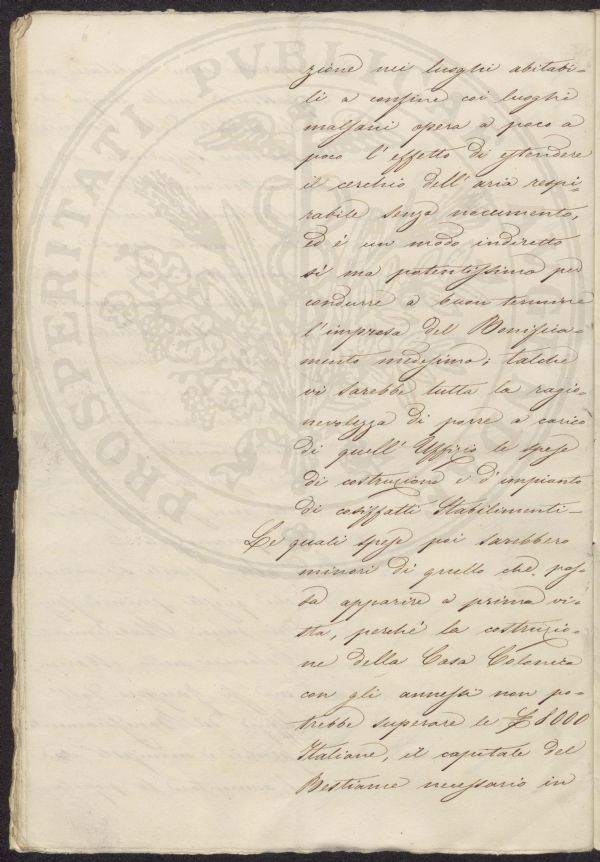 zione nei luoghi abitabi-
li a confine coi luoghi
malsani opera a poco a
poco l'effetto di estendere
il cerchio dell'aria respi-
rabile senza nocumento,
ed è un modo indiretto
sì ma potentissimo per
condurre a buon termine
l'impresa del Bonifica-
mento medesimo; talchè
vi sarebbe tutta la ragio-
nevolezza di porre a carico
di quell'Uffizio le spese
di costruzione e d'impianto
di cosiffatti Stabilimenti-
Le quali spese poi sarebbero
minori di quello che pos-
sa apparire a prima vi-
sta, perchè la costruzio-
ne della Casa Colonica
con gli annessi non po-
trebbe superare le £ 8000
Italiane, il capitale del
Bestiame necessario in
PROSPERITATI PVBLICAE